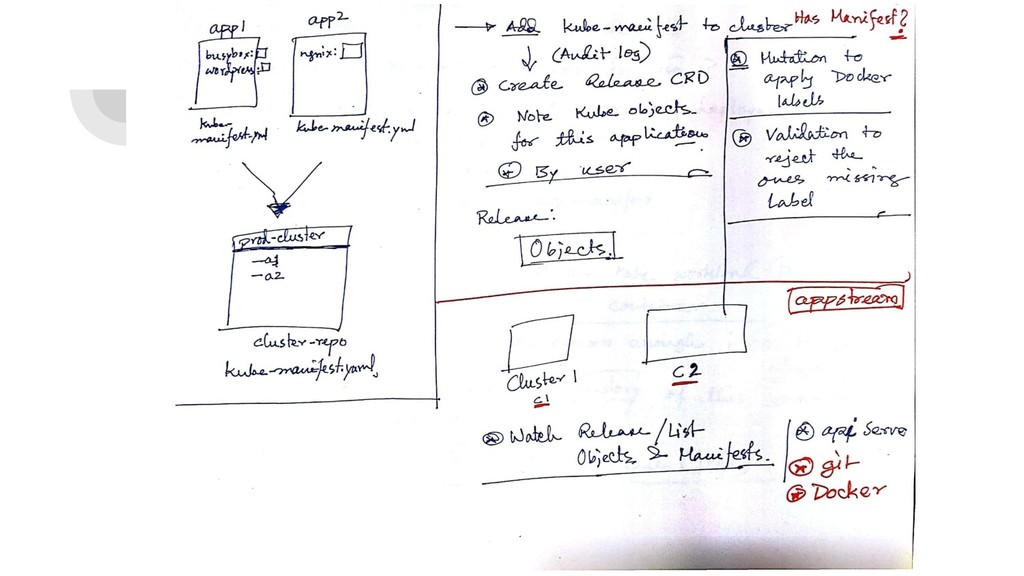 app1
busybox:
wordpress:
kube-
manifest.yml
app2
ngnix:
kube-manifest.yml
prod-cluster
-a1
-a2
cluster-repo
kube-manifest.yaml
→ Add kube-manifest to cluster
(Audit log)
Create Release CRD
Note Kube objects
for this applications
By user
Release:
Objects.
Has Manifest?
Mutation to
apply Docker
labels
Validation to
reject the
ones missing
Label
appstream
Cluster 1
C1
C2
Watch Release/List
Objects & Manifests.
api Server
git
Docker